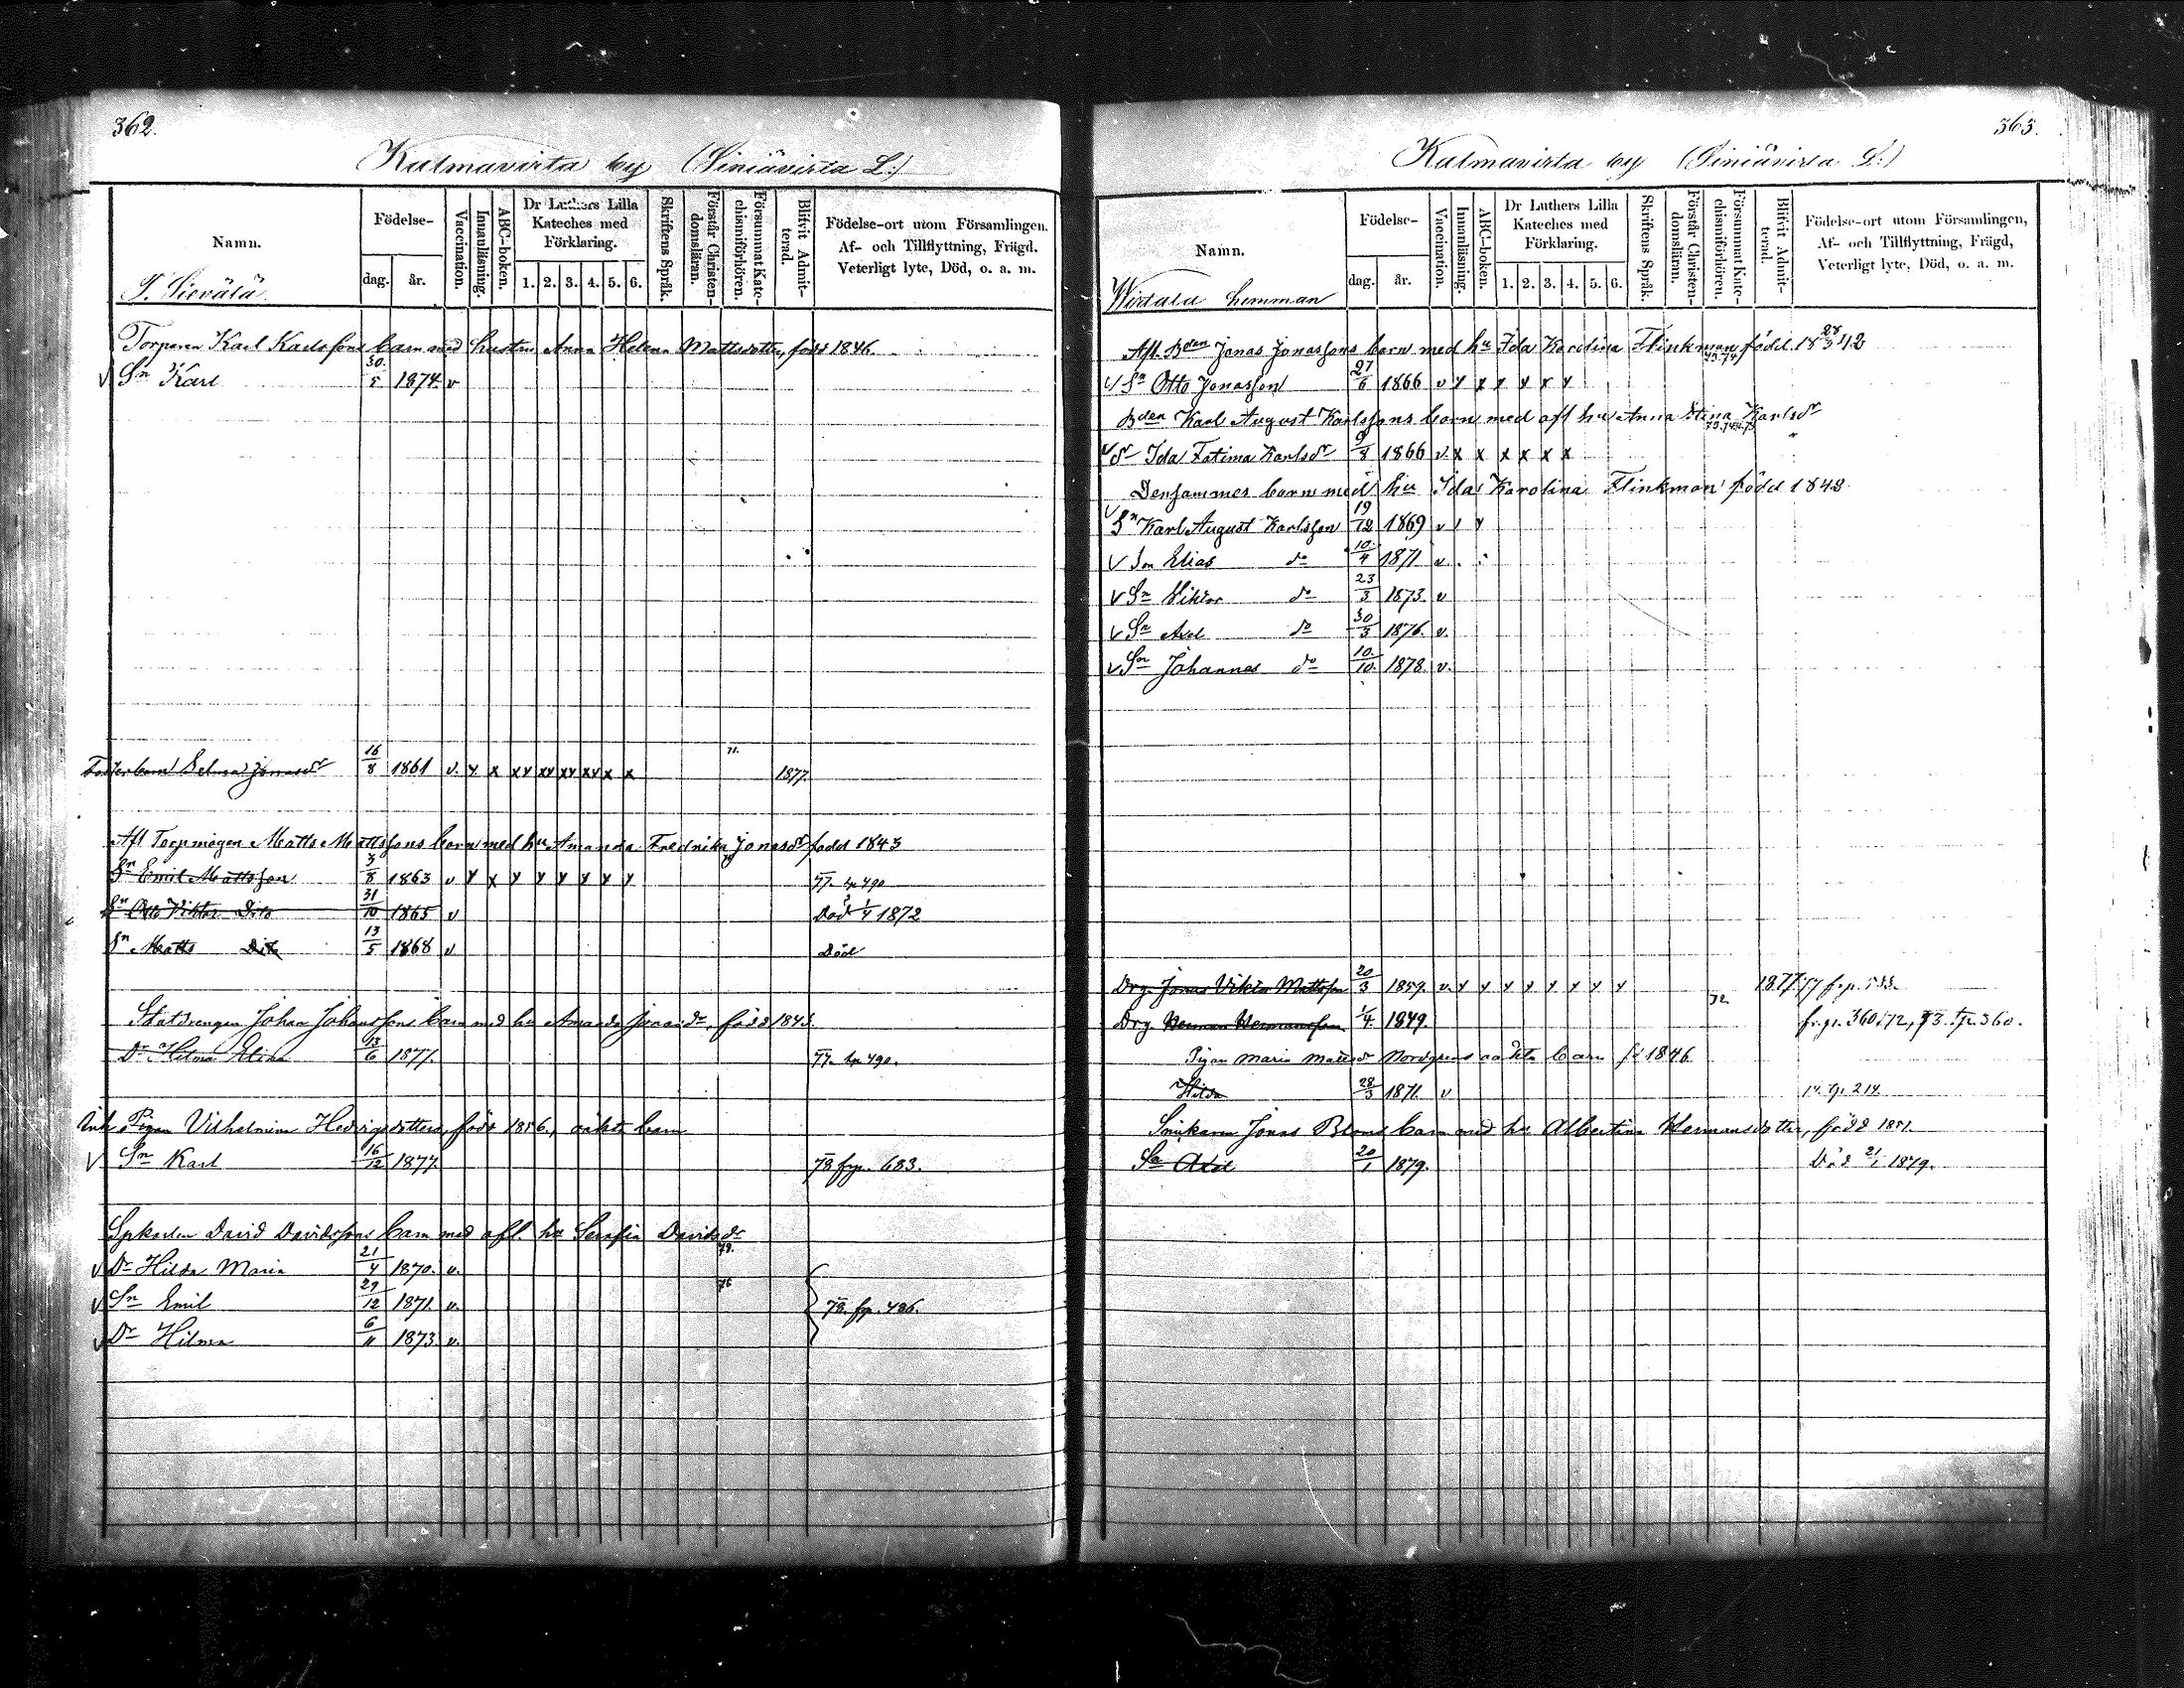 362.
Kulmavirta by (Siniävirta L.)
Namn.
Födelse-
dag.
år.
Vaccination.
Innanläsning.
ABC-boken.
Dr Luthers Lilla
Kateches med
Förklaring.
1. 2. 3. 4. 5. 6.
Skriftens Språk.
Förstår Christen-
domsläran.
Försummat Kate-
chismiförhören.
Blifvit Admit-
terad.
Födelse-ort utom Församlingen,
Af- och Tillflyttning, Frägd.
Veterligt lyte, Död, o. a. m.
J. Sievälä
Torparen Karl Karlssons barn med hustru Anna Helena Mattsdotter, född 1846.
v Sn Karl 30/5 1874. v
Fosterbarn Selma Jonasdr 16/8 1861 v. y x xy xy xy xy x x 71. 1877.
Afl Torpmågen Matts Mattssons barn med hu Amanda Fredrika Jonasdr född 1843
Sn Emil Mattsson 3/8 1863 v y x y y y y y y 77. tp 490
Sn Otto Viktor Dito 31/10 1865 v Död 1/4 1872
Sn Matts Dito 13/5 1868 v Död
Statdrengen Johan Johanssons barn med hu Amanda Jonasdr, född 1843.
Dr Hilma Elina 13/6 1877. 77. tp 490.
Inh Pigan Vilhelmina Hedvigsdotters, född 1856, oäkta barn
v Sn Karl 16/12 1877. 78 frp. 683.
Spkarlen David Davidssons barn med afl. hu Serafia Davidsdr
v Dr Hilda Maria 21/4 1870. v. 79.
v Sn Emil 29/12 1871. v. 78. fp. 486.
v Dr Hilma 6/11 1873. v.
363.
Kulmavirta by (Siniävirta L.)
Namn.
Födelse-
dag.
år.
Vaccination.
Innanläsning.
ABC-boken.
Dr Luthers Lilla
Kateches med
Förklaring.
1. 2. 3. 4. 5. 6.
Skriftens Språk.
Förstår Christen-
domsläran.
Försummat Kate-
chismiförhören.
Blifvit Admit-
terad.
Födelse-ort utom Församlingen,
Af- och Tillflyttning, Frägd,
Veterligt lyte, Död, o. a. m.
Wirtala hemman
Afl. Bden Jonas Jonassons barn med hu Ida Karolina Flinkman född 18 28/3 42
v Sn Otto Jonasson 27/6 1866 v y x y y x y
Bden Karl August Karlssons barn med afl hu Anna Stina Karlsdr
v Dr Ida Fatima Karlsdr 9/8 1866 v. x x x x x x
Densammes barn med hu Ida Karolina Flinkman född 1842
v Sn Karl August Karlsson 19/12 1869 v / y
v Son Elias do 10/4 1871 v.
v Sn Viktor do 23/3 1873. v
v Sn Axel do 30/3 1876. v.
v Sn Johannes do 10/10. 1878. v.
Drg. Jonas Viktor Mattsson 20/3 1859. v. y y y y y y y y 1877
Drg Herman Hermansson 1/4. 1849. 72. fr.p. 360.
Pigan Maria Mattsdr Nordgrens oäkta barn fd 1846
Hilda 28/3 1871. v 214.
Snickaren Jonas Bloms barn med hu Albertina Hermansdotter, född 1851.
Sn Axel 20/1 1879. Död 21/1 1879.